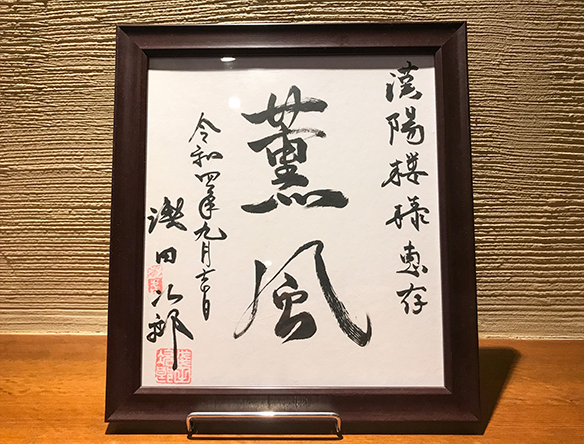 漢陽楼様恵存
薫風
令和四年九月吉日
浅田次郎